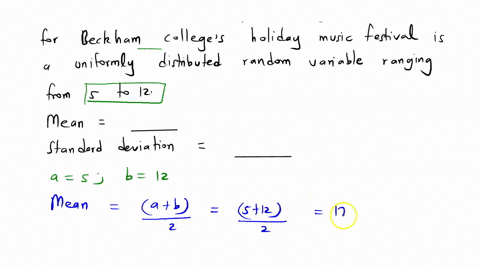 for Beckham college's holiday music festival is
a uniformly distributed random variable ranging
from 5 to 12.
Mean = ____
Standard deviation = ____
a = 5 ; b = 12
Mean = (a+b)/2 = (5+12)/2 = 17